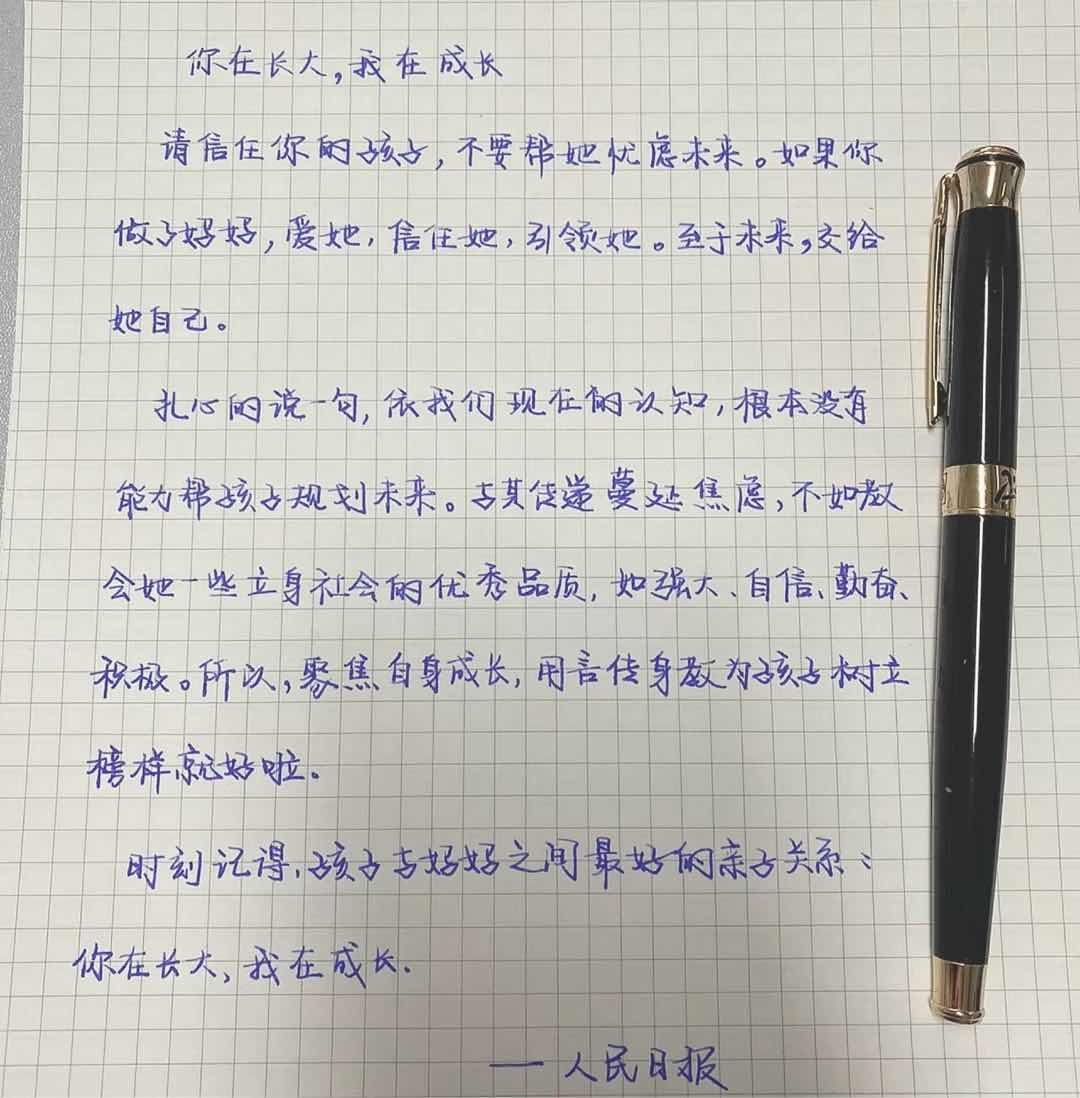 你在长大,我在成长
请信任你的孩子,不要帮她忧虑未来。如果你
做了妈妈,爱她,信任她,引领她。至于未来,交给
她自己。
扎心的说一句,依我们现在的认知,根本没有
能力帮孩子规划未来。与其传递蔓延焦虑,不如教
会她一些立身社会的优秀品质,如强大、自信、勤奋、
积极。所以,聚焦自身成长,用言传身教为孩子树立
榜样就好啦.
时刻记得,孩子与妈妈之间最好的亲子关系:
你在长大,我在成长.
—人民日报